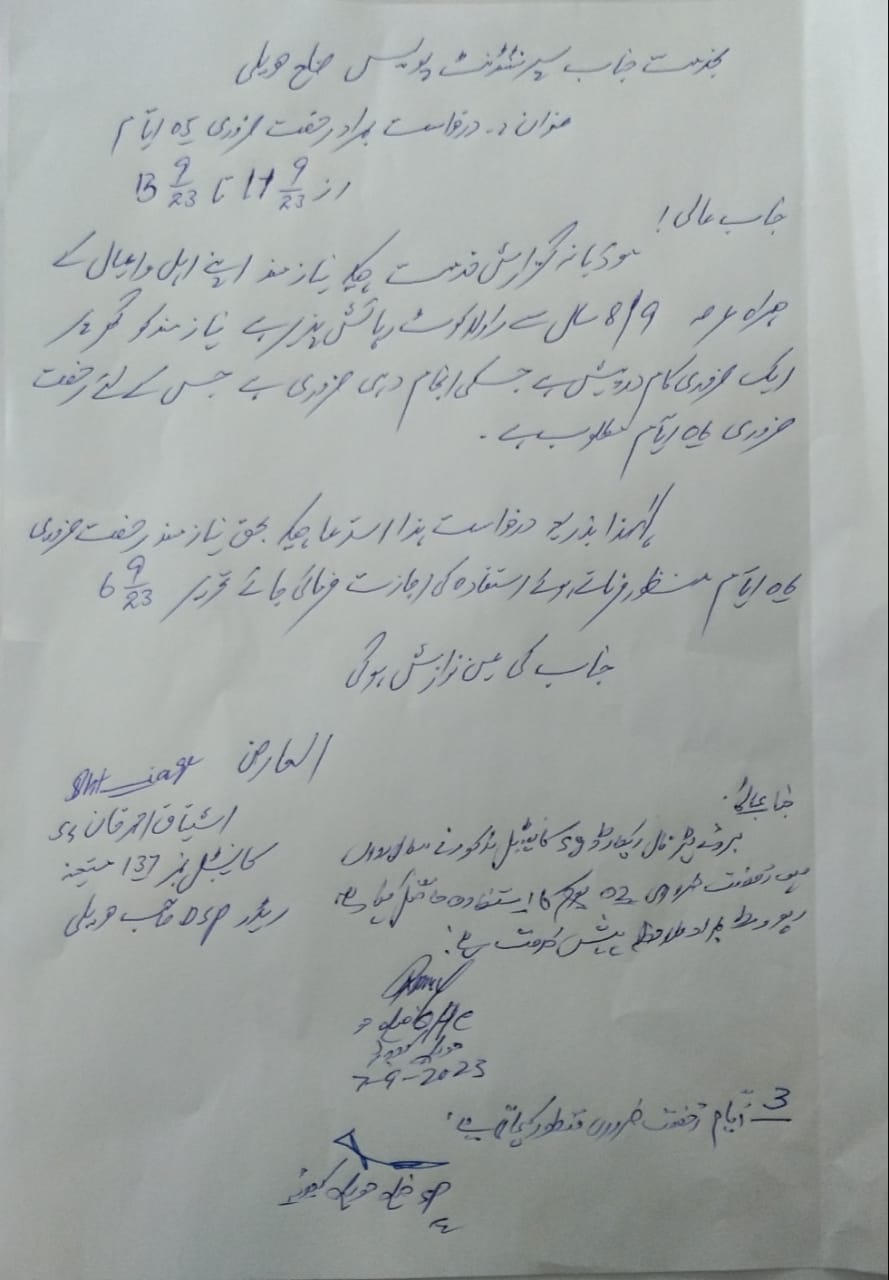 بخدمت جناب سپرنٹنڈنٹ پولیس ضلع حویلی
عنوان :۔ درخواست بمراد رخصت ضروری 05 ایام
از 9/23 تا 13 9/23
جناب عالی!
مودبانہ گزارش خدمت ہیکہ نیازمند اپنے اہل و عیال کے
ہمراہ عرصہ 8/9 سال سے راولاکوٹ رہائش پذیر ہے نیازمند کو گھر پر
ایک ضروری کام درپیش ہے جسکی انجام دہی ضروری ہے جس کے لئے رخصت
ضروری 06 ایام مطلوب ہے۔
لہٰذا بذریعہ درخواست ہذا استدعا ہیکہ بحق نیازمند رخصت ضروری
06 ایام منظور فرماتے ہوئے استفادہ کی اجازت فرمائی جائے تحریر 6 9/23
جناب کی عین نوازش ہوگی
العارض
اشتیاق احمد خان
کانسٹیبل نمبر 137 متعینہ
ریڈر DSP صاحب حویلی
جناب عالی!
بروئے پڑتال ریکارڈ کانسٹیبل مذکور نے سال رواں
میں رخصت ضروری 02 یوم کا استفادہ حاصل کیا ہے
رپورٹ بمراد ملاحظہ پیش خدمت ہے۔
7-9-2023
3 ایام رخصت ضروری منظور کی جاتی ہے۔
SP ضلع حویلی کہوٹہ